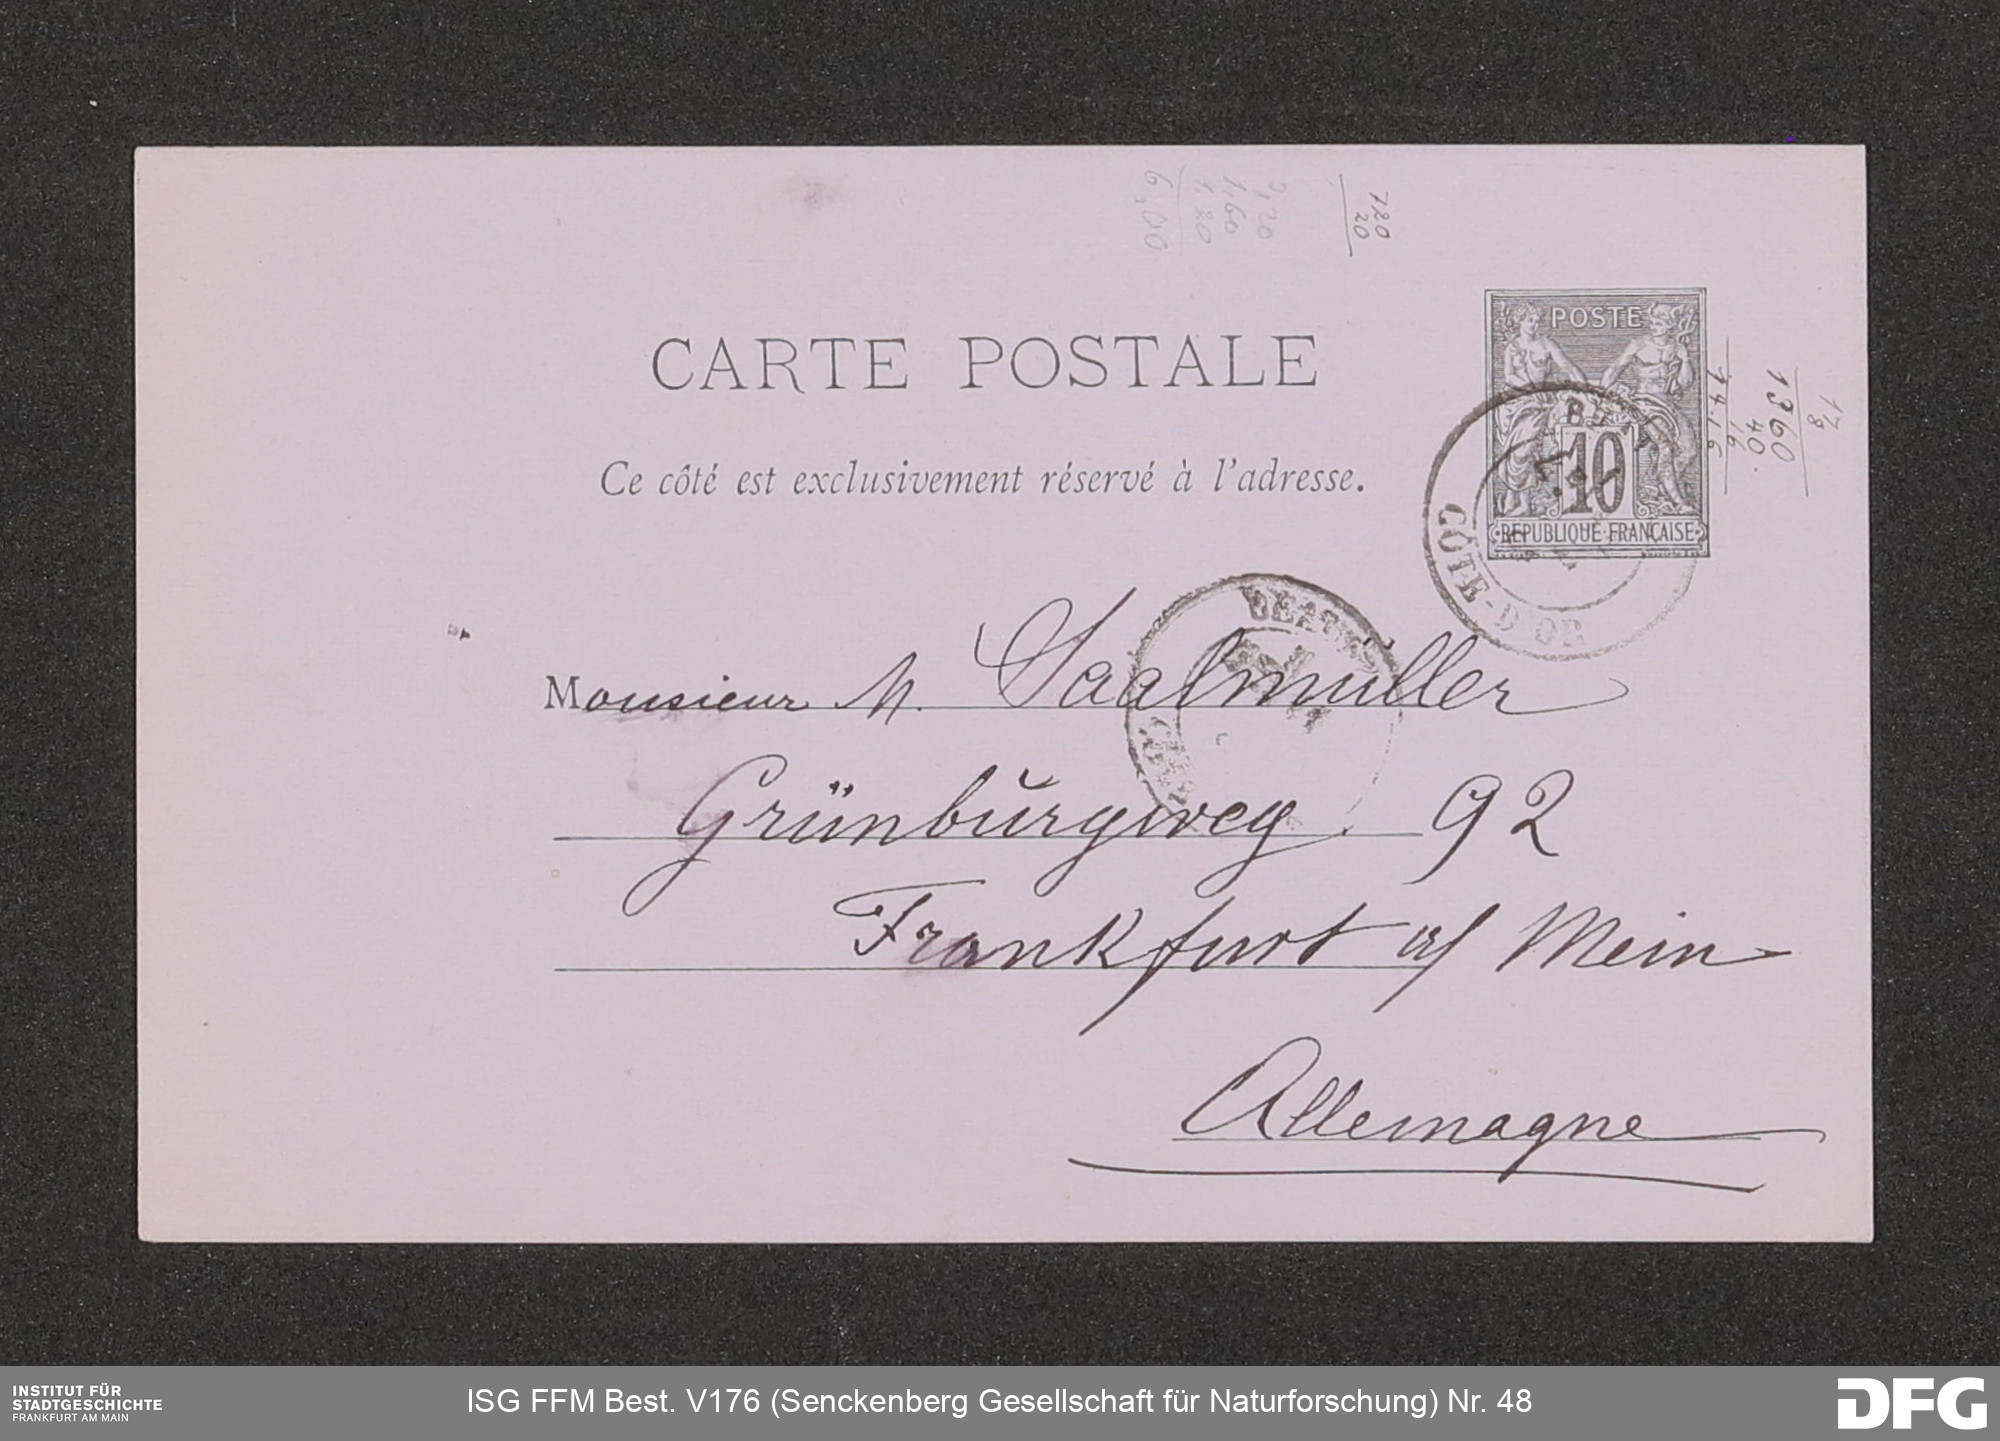 2,20
1,60
1.20
6,00
720
20
CARTE POSTALE
POSTE
10
REPUBLIQUE FRANÇAISE
Ce côté est exclusivement réservé à l'adresse.
CÔTE-D'OR
17
8
1360
40.
16
1416
Monsieur M. Saalmüller
Grünbŭrgweg. 92
Frankfurt a/ Mein
Allemagne
INSTITUT FÜR
STADTGESCHICHTE
FRANKFURT AM MAIN
ISG FFM Best. V176 (Senckenberg Gesellschaft für Naturforschung) Nr. 48
DFG